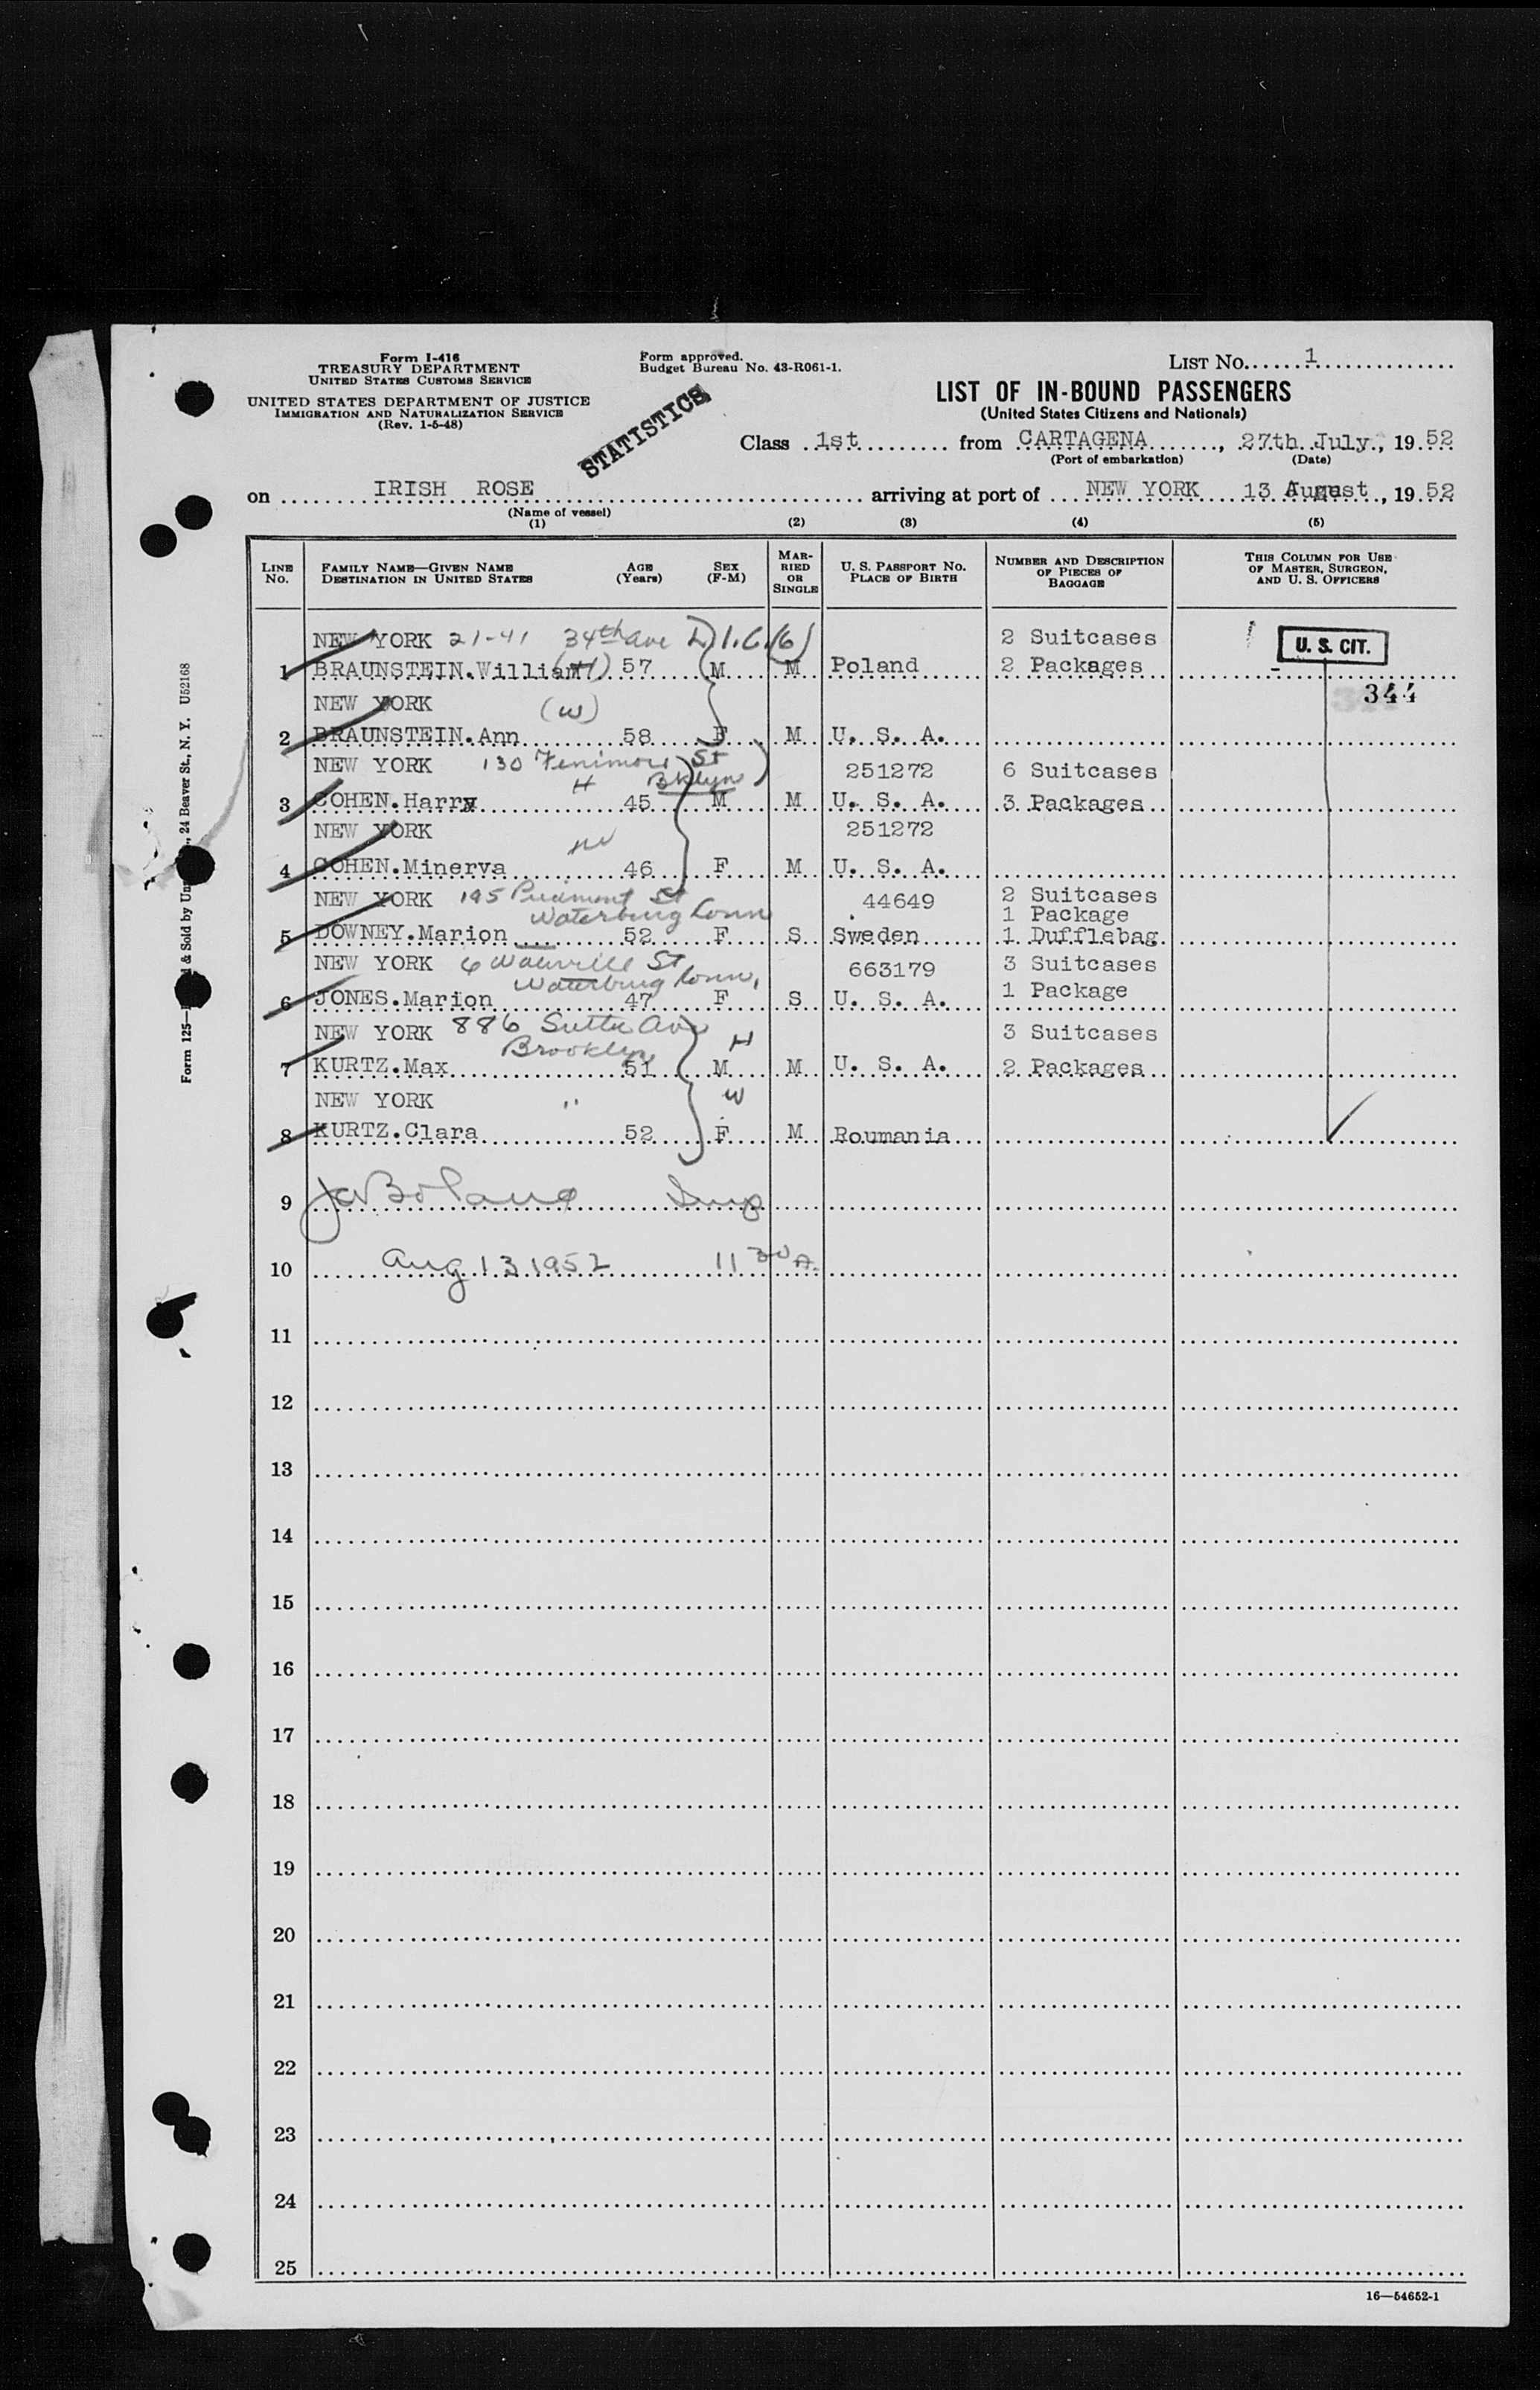 Form I-416
TREASURY DEPARTMENT
UNITED STATES CUSTOMS SERVICE
UNITED STATES DEPARTMENT OF JUSTICE
IMMIGRATION AND NATURALIZATION SERVICE
(Rev. 1-5-48)
Form approved.
Budget Bureau No. 43-R061-1.
STATISTICS
LIST No. 1
LIST OF IN-BOUND PASSENGERS
(United States Citizens and Nationals)
Class 1st from CARTAGENA, 27th July, 1952
(Port of embarkation) (Date)
on IRISH ROSE arriving at port of NEW YORK 13 August, 1952
(Name of vessel)
(1) (2) (3) (4) (5)
LINE No. FAMILY NAME—GIVEN NAME DESTINATION IN UNITED STATES AGE (Years) SEX (F-M) MARRIED OR SINGLE U. S. PASSPORT No. PLACE OF BIRTH NUMBER AND DESCRIPTION OF PIECES OF BAGGAGE THIS COLUMN FOR USE OF MASTER, SURGEON, AND U. S. OFFICERS
NEW YORK 21-41 34th Ave L.I.C. (6) 2 Suitcases U. S. CIT.
1 BRAUNSTEIN.William (H) 57 M M Poland 2 Packages
NEW YORK (W) 344
2 BRAUNSTEIN.Ann 58 F M U. S. A.
NEW YORK 130 Fenimore St 251272 6 Suitcases
H Bklyn
3 COHEN.Harry 45 M M U. S. A. 3 Packages
NEW YORK W 251272
4 COHEN.Minerva 46 F M U. S. A.
NEW YORK 195 Piedmont St 44649 2 Suitcases
Waterbury Conn 1 Package
5 DOWNEY.Marion 52 F S Sweden 1 Dufflebag
NEW YORK 6 St 663179 3 Suitcases
Waterbury Conn, 1 Package
6 JONES.Marion 47 F S U. S. A.
NEW YORK 886 Sutter Ave H 3 Suitcases
Brooklyn
7 KURTZ.Max 51 M M U. S. A. 2 Packages
NEW YORK " W
8 KURTZ.Clara 52 F M Roumania
9 Insp
10 Aug 13 1952 11 30 A.
11
12
13
14
15
16
17
18
19
20
21
22
23
24
25
16—54652-1
Form 125— & Sold by 24 Beaver St., N. Y. U52168